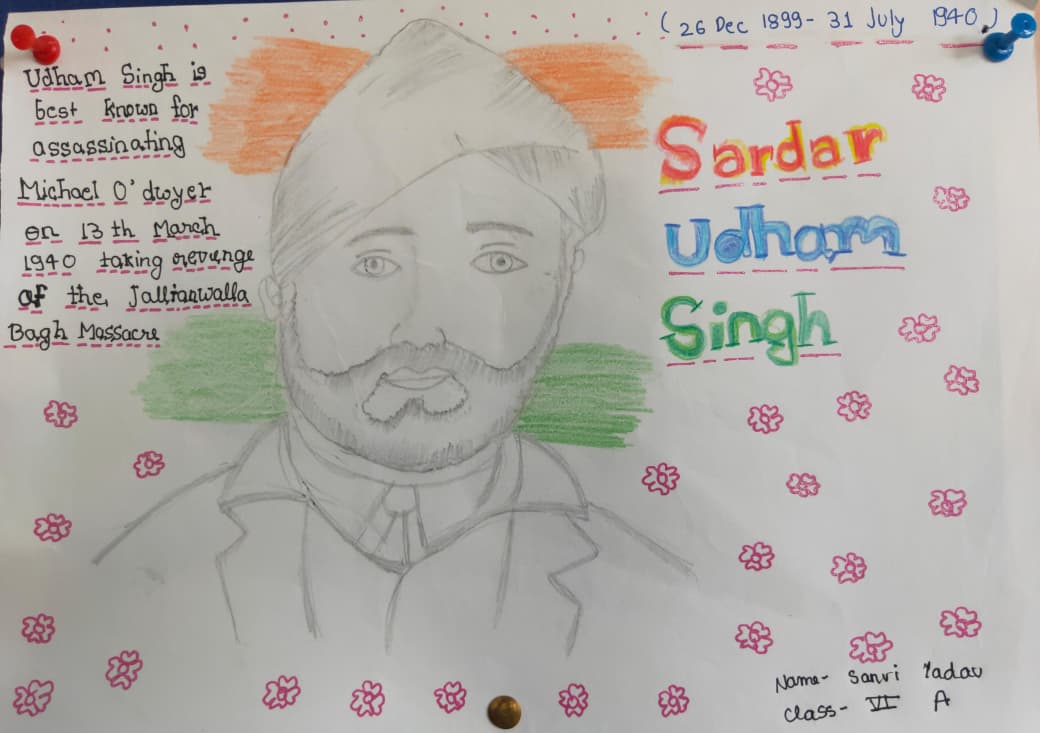 (26 Dec 1899- 31 July 1940)
Udham Singh is
best known for
assassinating
Michael O'dwyer
on 13 th March
1940 taking revenge
of the Jallianwalla
Bagh Massacre
Sardar
Udham
Singh
Name- Sanvi Yadav
Class- VI A